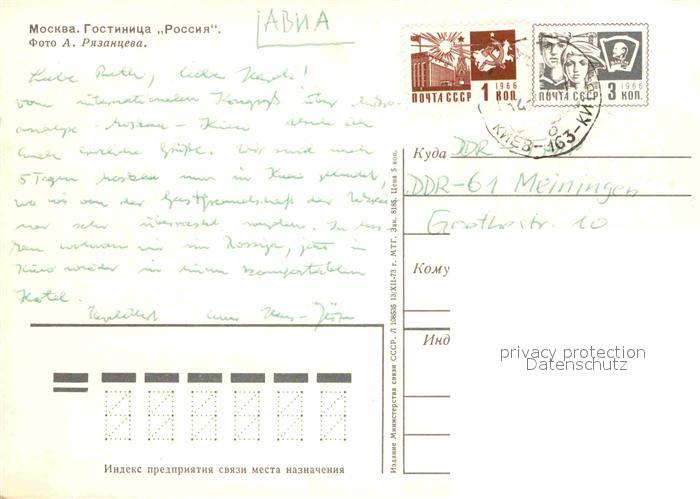 Москва. Гостиница „Россия".
Фото А. Рязанцева.
АВИА
Liebe liebe
vom internationalen Kongreß über
analyse Moskau – Kiew sende ich
Euch herzliche Grüße. Wir sind nach
5 Tagen Moskau nun in Kiew gelandet,
wo wir von der Gastfreundschaft der
sehr überrascht wurden. In
wohnen wir im Rossija, jetzt in
wieder in einem komfortablen
Hotel.
Herzlichst Euer Hans-
1966
ПОЧТА СССР 1 КОП.
1966
ПОЧТА СССР 3 КОП.
КИЕВ-163-КИ
Куда DDR
DDR-61 Meiningen
Goethestr. 10
Кому
Инд
privacy protection
Datenschutz
Издание Министерства связи СССР. Л 108535 13/XII-73 г. МТГ. Зак. 8185. Цена 5 коп.
Индекс предприятия связи места назначения